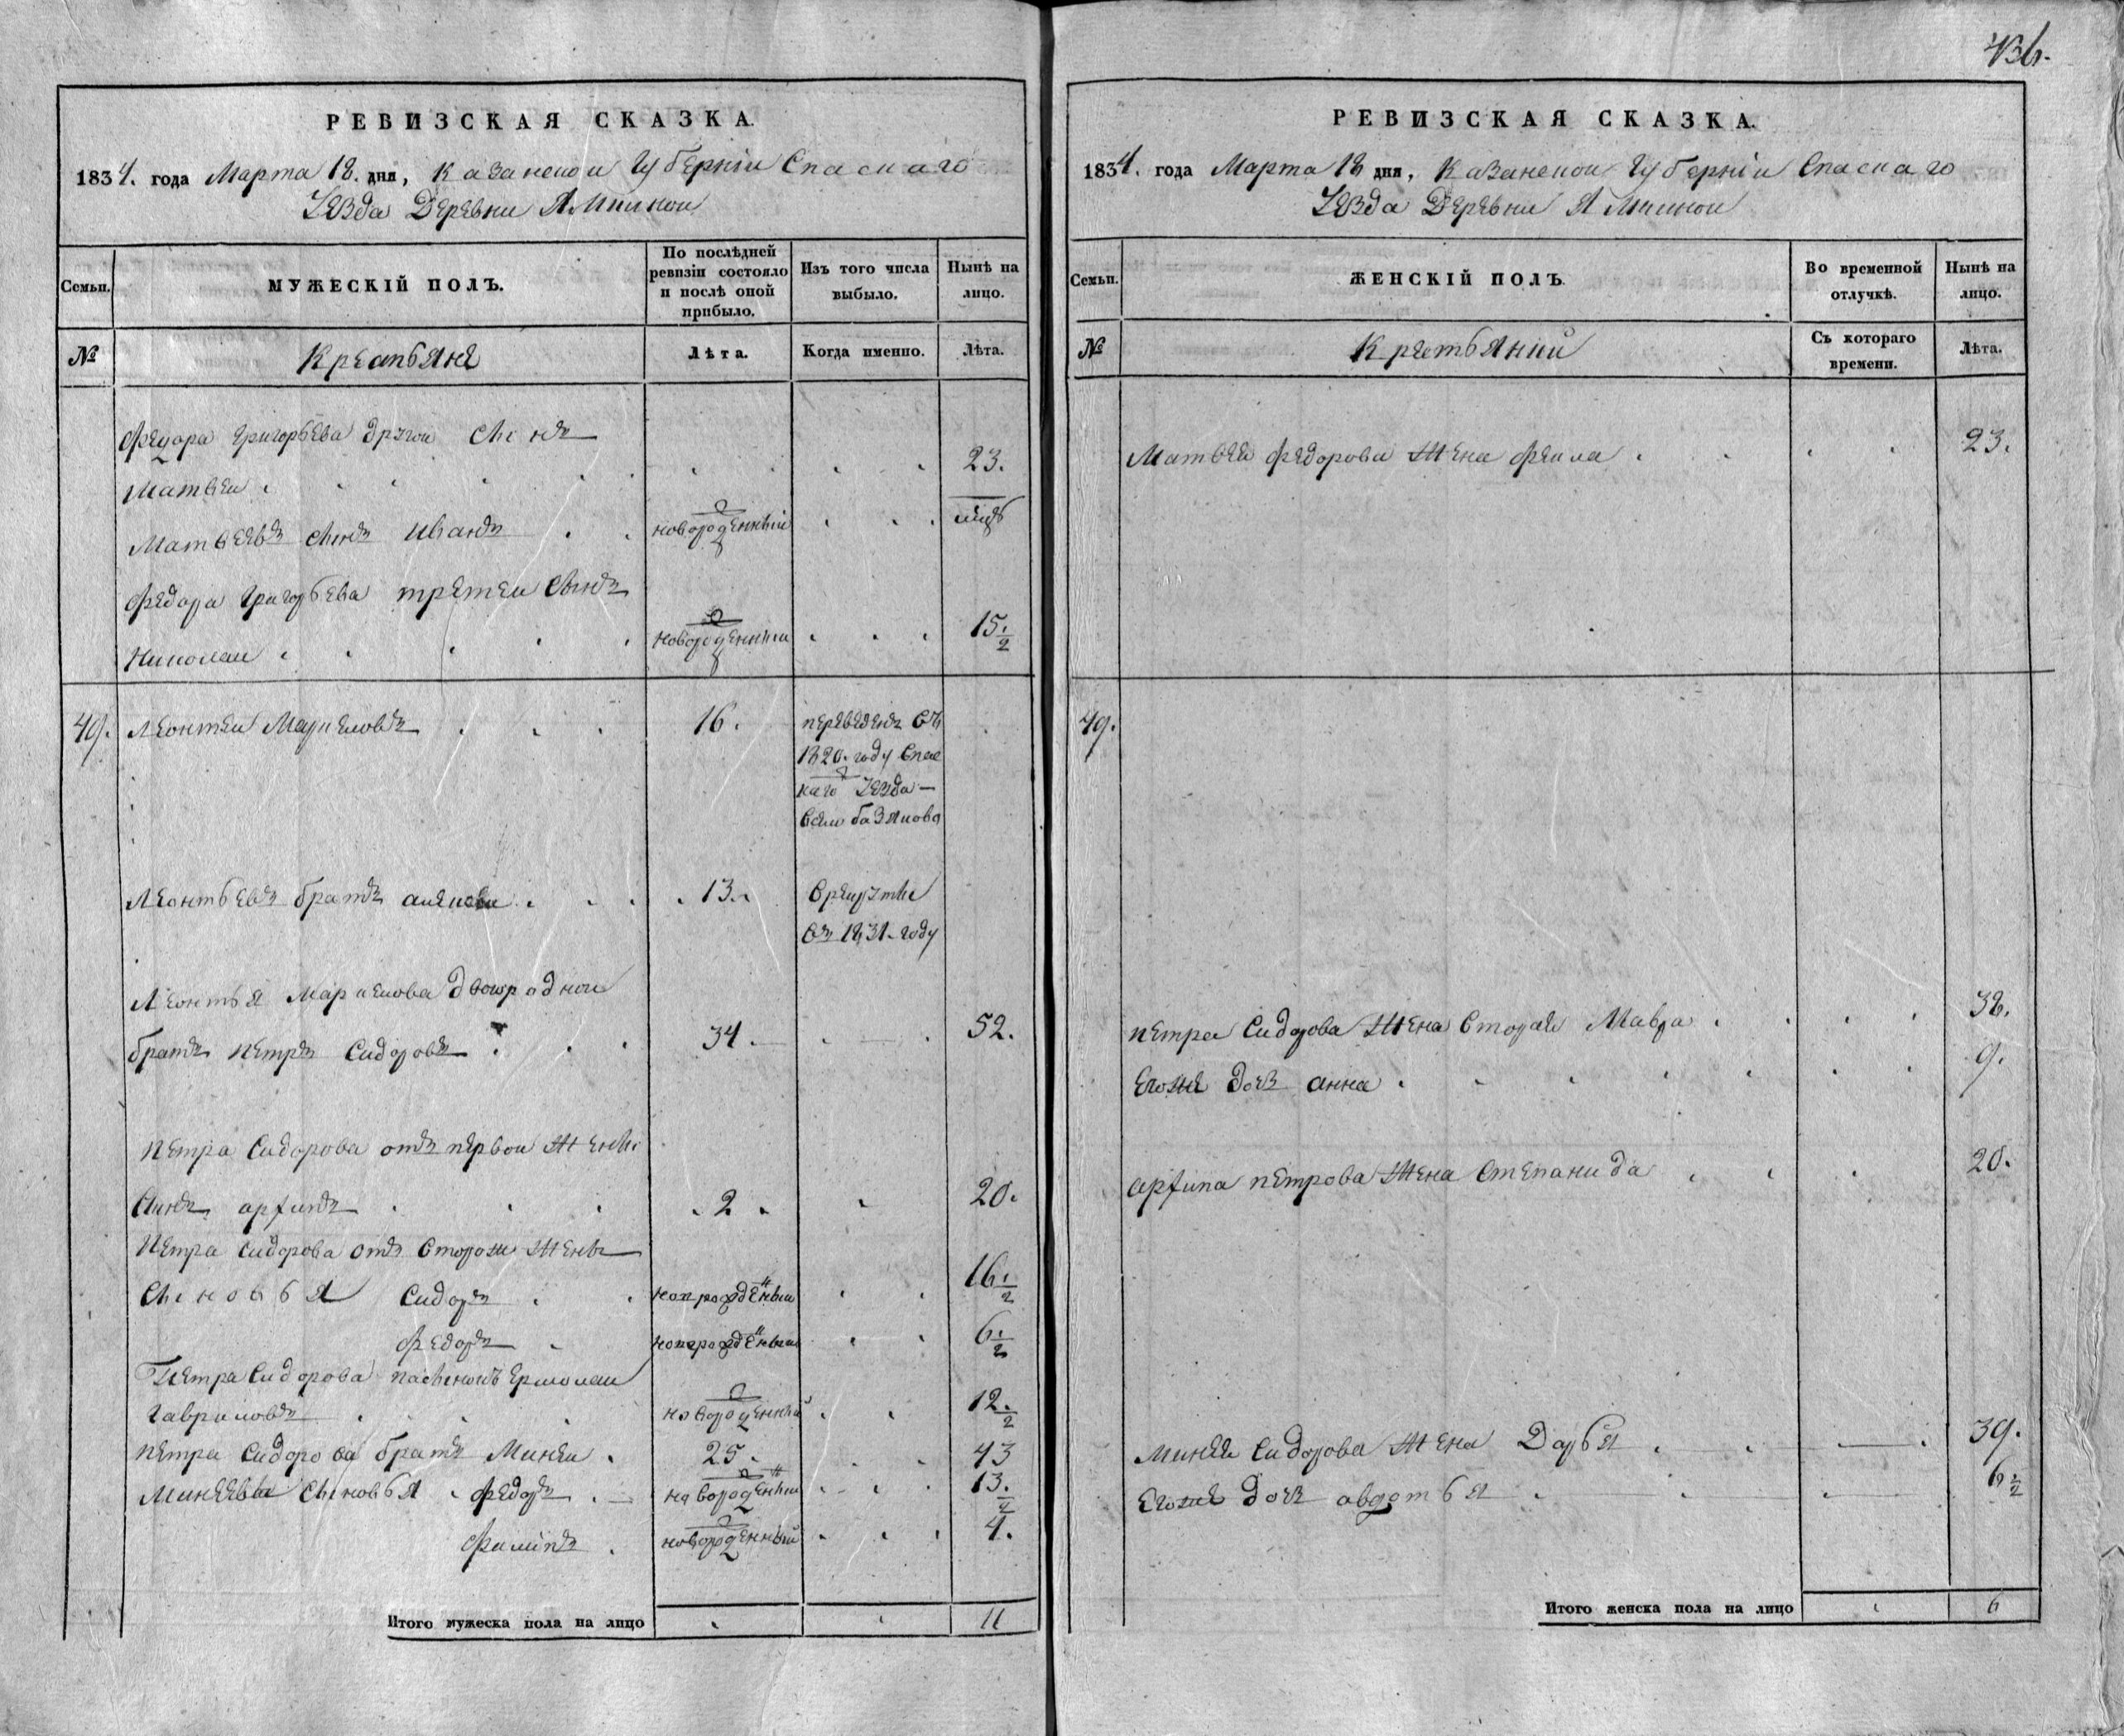 436.
РЕВИЗСКАЯ СКАЗКА.
1834. года Марта 18. дня, Казанской Губерніи Спаскаго
Уѣзда Деревни
МУЖЕСКІЙ ПОЛЪ.
Семьи.
По послѣдней ревизіи состояло и послѣ оной прибыло.
Изъ того числа выбыло.
Нынѣ на лицо.
№
Крестьяне
Лѣта.
Когда именно.
Лѣта.
Федора Григорьева другой сынъ
Матвѣй 23.
Матвѣевъ сынъ Иванъ новорожденный
Федора Григорьева третей сынъ
Николай новорожденный 15 1/2
49. Леонтей 16. переведенъ въ
1820. году Спас
каго Уѣзда
Леонтьевъ братъ алексей 13. в рекруты
въ 1831. году
Леонтья двоюродной
братъ петръ Сидоровъ 34. 52.
петра Сидорова отъ первой жены
Сынъ 2. 20.
Петра Сидорова отъ второй жены
Сыновья Сидоръ 16 1/2
Федоръ 6 1/2
Петра Сидорова пасынокъ Ермолай
Гавриловъ новорожденный 12 1/2
петра Сидорова братъ Миней 25. 43
Минѣевы Сыновья Федоръ новорожденный 13.
Филипъ новорожденный 4.
Итого мужеска пола на лицо 11
РЕВИЗСКАЯ СКАЗКА.
1834. года Марта 18 дня, Казанской Губерніи Спаскаго
Уѣзда Деревни
Семьи.
ЖЕНСКІЙ ПОЛЪ.
Во временной отлучкѣ.
Нынѣ на лицо.
№
Съ котораго времени.
Лѣта.
Матвея Федорова жена 23.
49.
петра Сидорова жена вторая Мавра 38.
Егоже дочь анна 9.
петрова жена Степанида 20.
Минея Сидорова жена Дарья 39.
Егоже дочь авдотья 6 1/2
Итого женска пола на лицо 6